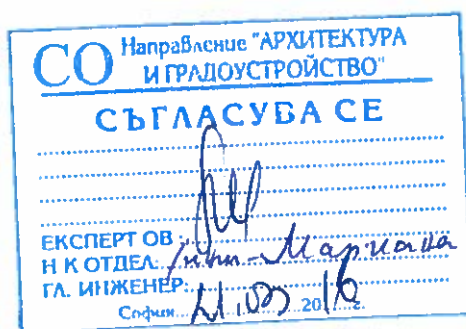 СО Направление "АРХИТЕКТУРА
И ГРАДОУСТРОЙСТВО"
СЪГЛАСУВА СЕ
ЕКСПЕРТ ОВ:
Н К ОТДЕЛ:
ГЛ. ИНЖЕНЕР:
София 21.03 2016 г.